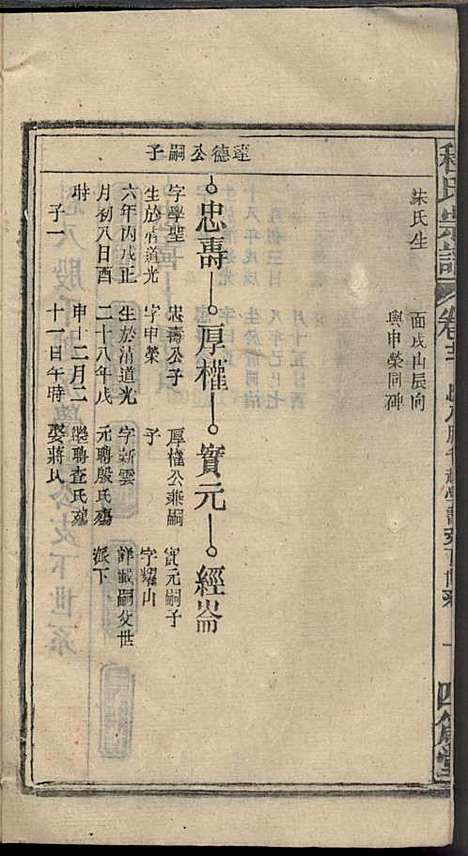 程氏宗譜
四箴堂
朱氏生
面戌山辰向
與申榮同碑
達德公嗣子
忠壽
字學聖
生於清道光
六年丙戌正
月初八日酉
時
子一
厚權
忠壽公子
字申榮
生於清道光
二十八年戊
申十二月二
十一日午時
娶蔣氏
寳元
厚權公兼嗣
子
字新雲
元聘殷氏殤
繼聘查氏殤
經崙
寳元嗣子
字耀山
詳載嗣父世
派下